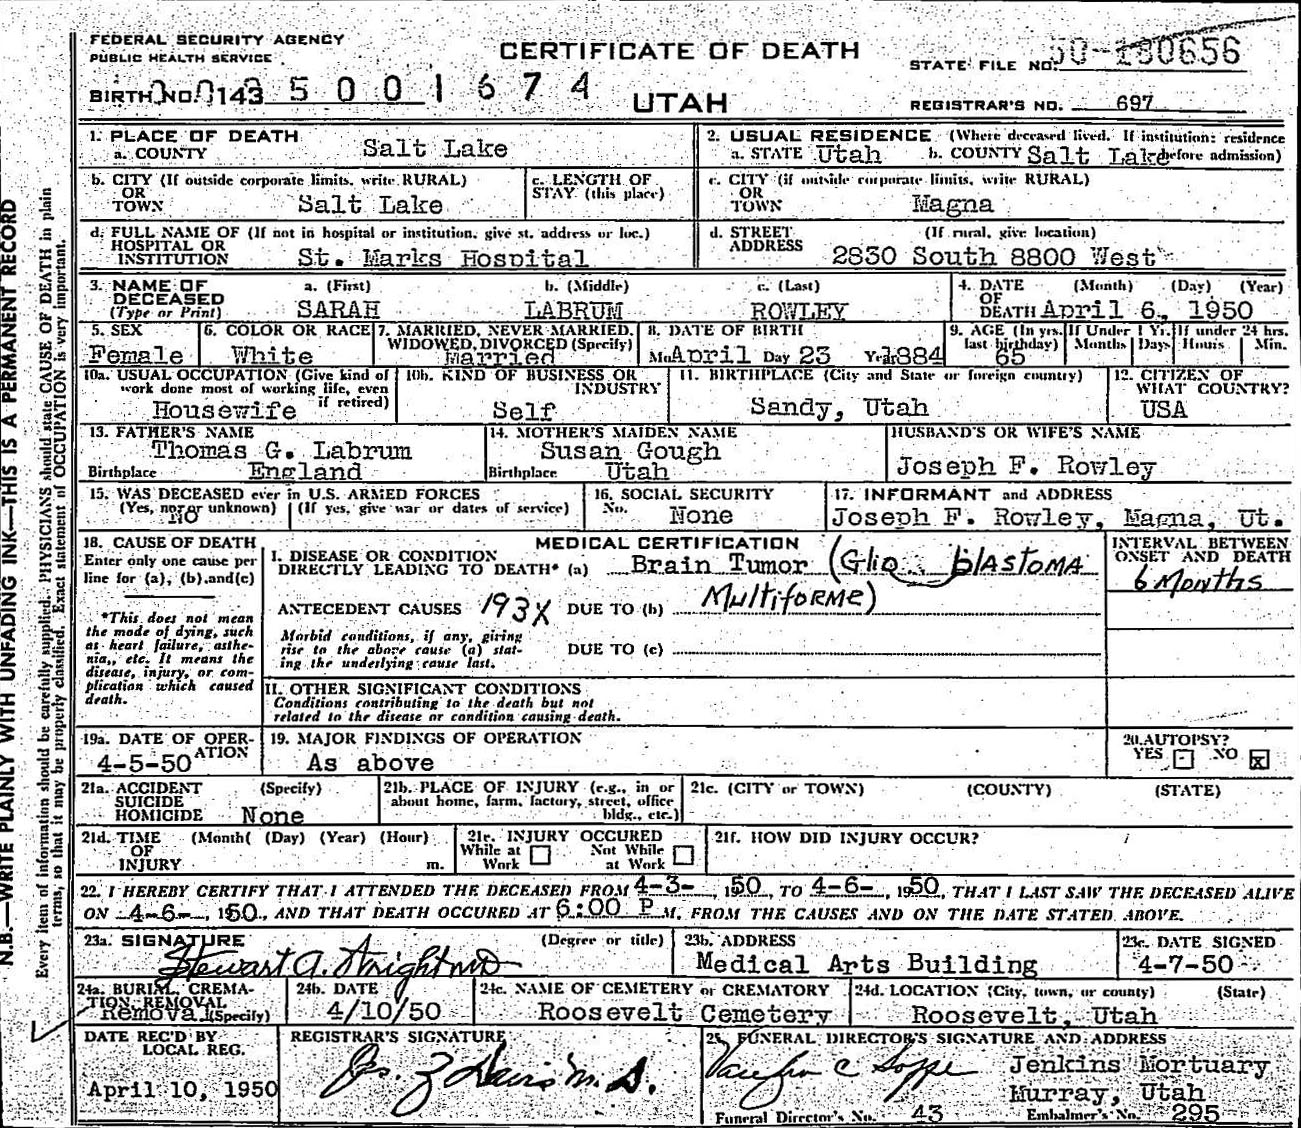 FEDERAL SECURITY AGENCY
PUBLIC HEALTH SERVICE
CERTIFICATE OF DEATH
UTAH
STATE FILE NO.
BIRTH NO. 0143 5 0 0 1 6 7 4
REGISTRAR'S NO. 697
1. PLACE OF DEATH
a. COUNTY Salt Lake
2. USUAL RESIDENCE (Where deceased lived. If institution: residence before admission)
a. STATE Utah b. COUNTY Salt Lake
b. CITY (If outside corporate limits, write RURAL) OR TOWN Salt Lake
c. LENGTH OF STAY (this place)
c. CITY (if outside corporate limits, write RURAL) OR TOWN Magna
d. FULL NAME OF (If not in hospital or institution, give st. address or loc.) HOSPITAL OR INSTITUTION St. Marks Hospital
d. STREET ADDRESS (If rural, give location) 2830 South 8800 West
3. NAME OF DECEASED (Type or Print)
a. (First) SARAH b. (Middle) LABRUM c. (Last) ROWLEY
4. DATE OF DEATH (Month) (Day) (Year) April 6, 1950
5. SEX Female
6. COLOR OR RACE White
7. MARRIED, NEVER MARRIED, WIDOWED, DIVORCED (Specify) Married
8. DATE OF BIRTH Mo. April Day 23 Year 1884
9. AGE (In yrs. last birthday) 65 If Under 1 Yr. Months Days If under 24 hrs. Hours Min.
10a. USUAL OCCUPATION (Give kind of work done most of working life, even if retired) Housewife
10b. KIND OF BUSINESS OR INDUSTRY Self
11. BIRTHPLACE (City and State or foreign country) Sandy, Utah
12. CITIZEN OF WHAT COUNTRY? USA
13. FATHER'S NAME Thomas G. Labrum
Birthplace England
14. MOTHER'S MAIDEN NAME Susan Gough
Birthplace Utah
HUSBAND'S OR WIFE'S NAME
Joseph F. Rowley
15. WAS DECEASED ever in U.S. ARMED FORCES
(Yes, no, or unknown) No (If yes, give war or dates of service)
16. SOCIAL SECURITY No. None
17. INFORMANT and ADDRESS
Joseph F. Rowley, Magna, Ut.
18. CAUSE OF DEATH
Enter only one cause per line for (a), (b), and (c)
*This does not mean the mode of dying, such as heart failure, asthenia, etc. It means the disease, injury, or complication which caused death.
MEDICAL CERTIFICATION
INTERVAL BETWEEN ONSET AND DEATH
I. DISEASE OR CONDITION DIRECTLY LEADING TO DEATH* (a) Brain Tumor (Glio blastoma
6 Months
ANTECEDENT CAUSES 193X DUE TO (b) Multiforme)
Morbid conditions, if any, giving rise to the above cause (a) stating the underlying cause last.
DUE TO (c)
II. OTHER SIGNIFICANT CONDITIONS
Conditions contributing to the death but not related to the disease or condition causing death.
19a. DATE OF OPERATION 4-5-50
19. MAJOR FINDINGS OF OPERATION
As above
20. AUTOPSY?
YES - NO X
21a. ACCIDENT SUICIDE HOMICIDE (Specify) None
21b. PLACE OF INJURY (e.g., in or about home, farm, factory, street, office bldg., etc.)
21c. (CITY or TOWN) (COUNTY) (STATE)
21d. TIME OF INJURY (Month( (Day) (Year) (Hour) m.
21e. INJURY OCCURED
While at Work Not While at Work
21f. HOW DID INJURY OCCUR?
22. I HEREBY CERTIFY THAT I ATTENDED THE DECEASED FROM 4-3-, 1950, TO 4-6-, 1950, THAT I LAST SAW THE DECEASED ALIVE
ON 4-6-, 1950., AND THAT DEATH OCCURED AT 6:00 P M. FROM THE CAUSES AND ON THE DATE STATED ABOVE.
23a. SIGNATURE (Degree or title)
Stewart A. Wright MD
23b. ADDRESS
Medical Arts Building
23c. DATE SIGNED
4-7-50
24a. BURIAL, CREMATION, REMOVAL (Specify) Removal
24b. DATE
4/10/50
24c. NAME OF CEMETERY or CREMATORY
Roosevelt Cemetery
24d. LOCATION (City, town, or county) (State)
Roosevelt, Utah
DATE REC'D BY LOCAL REG.
April 10, 1950
REGISTRAR'S SIGNATURE
25. FUNERAL DIRECTOR'S SIGNATURE AND ADDRESS
Jenkins Mortuary
Murray, Utah
Funeral Director's No. 43 Embalmer's No. 295
N.B.—WRITE PLAINLY WITH UNFADING INK—THIS IS A PERMANENT RECORD
Every item of information should be carefully supplied. PHYSICIANS should state CAUSE OF DEATH in plain
terms, so that it may be properly classified. Exact statement of OCCUPATION is very important.